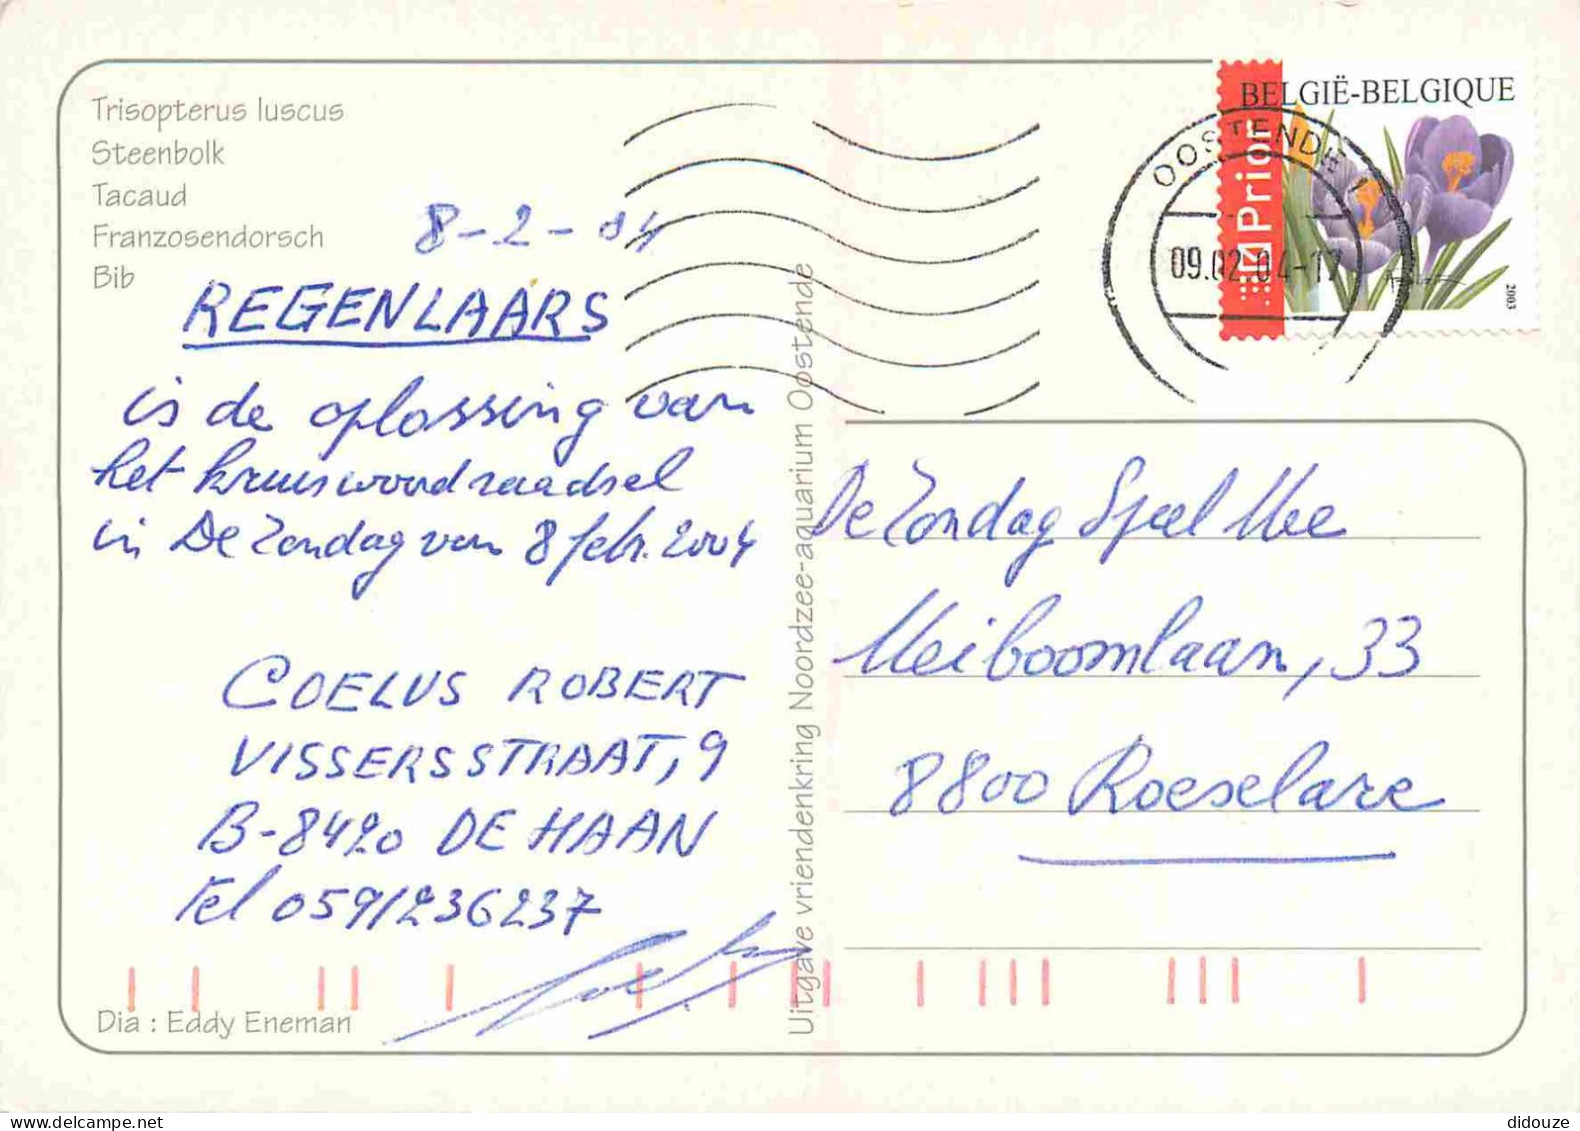 Trisopterus luscus
Steenbolk
Tacaud
Franzosendorsch
Bib
8-2-04
REGENLAARS
is de oplossing van
het kruiswoordraadsel
in De Zondag van 8 febr. 2004
COELUS ROBERT
VISSERSSTRAAT, 9
B-8420 DE HAAN
Tel 059/236237
Dia : Eddy Eneman
Uitgave vriendenkring Noordzee-aquarium Oostende
BELGIË-BELGIQUE
Prior
2003
OOSTENDE 1
09.02.04-17
De Zondag Speel Mee
Meiboomlaan, 33
8800 Roeselare
didouze